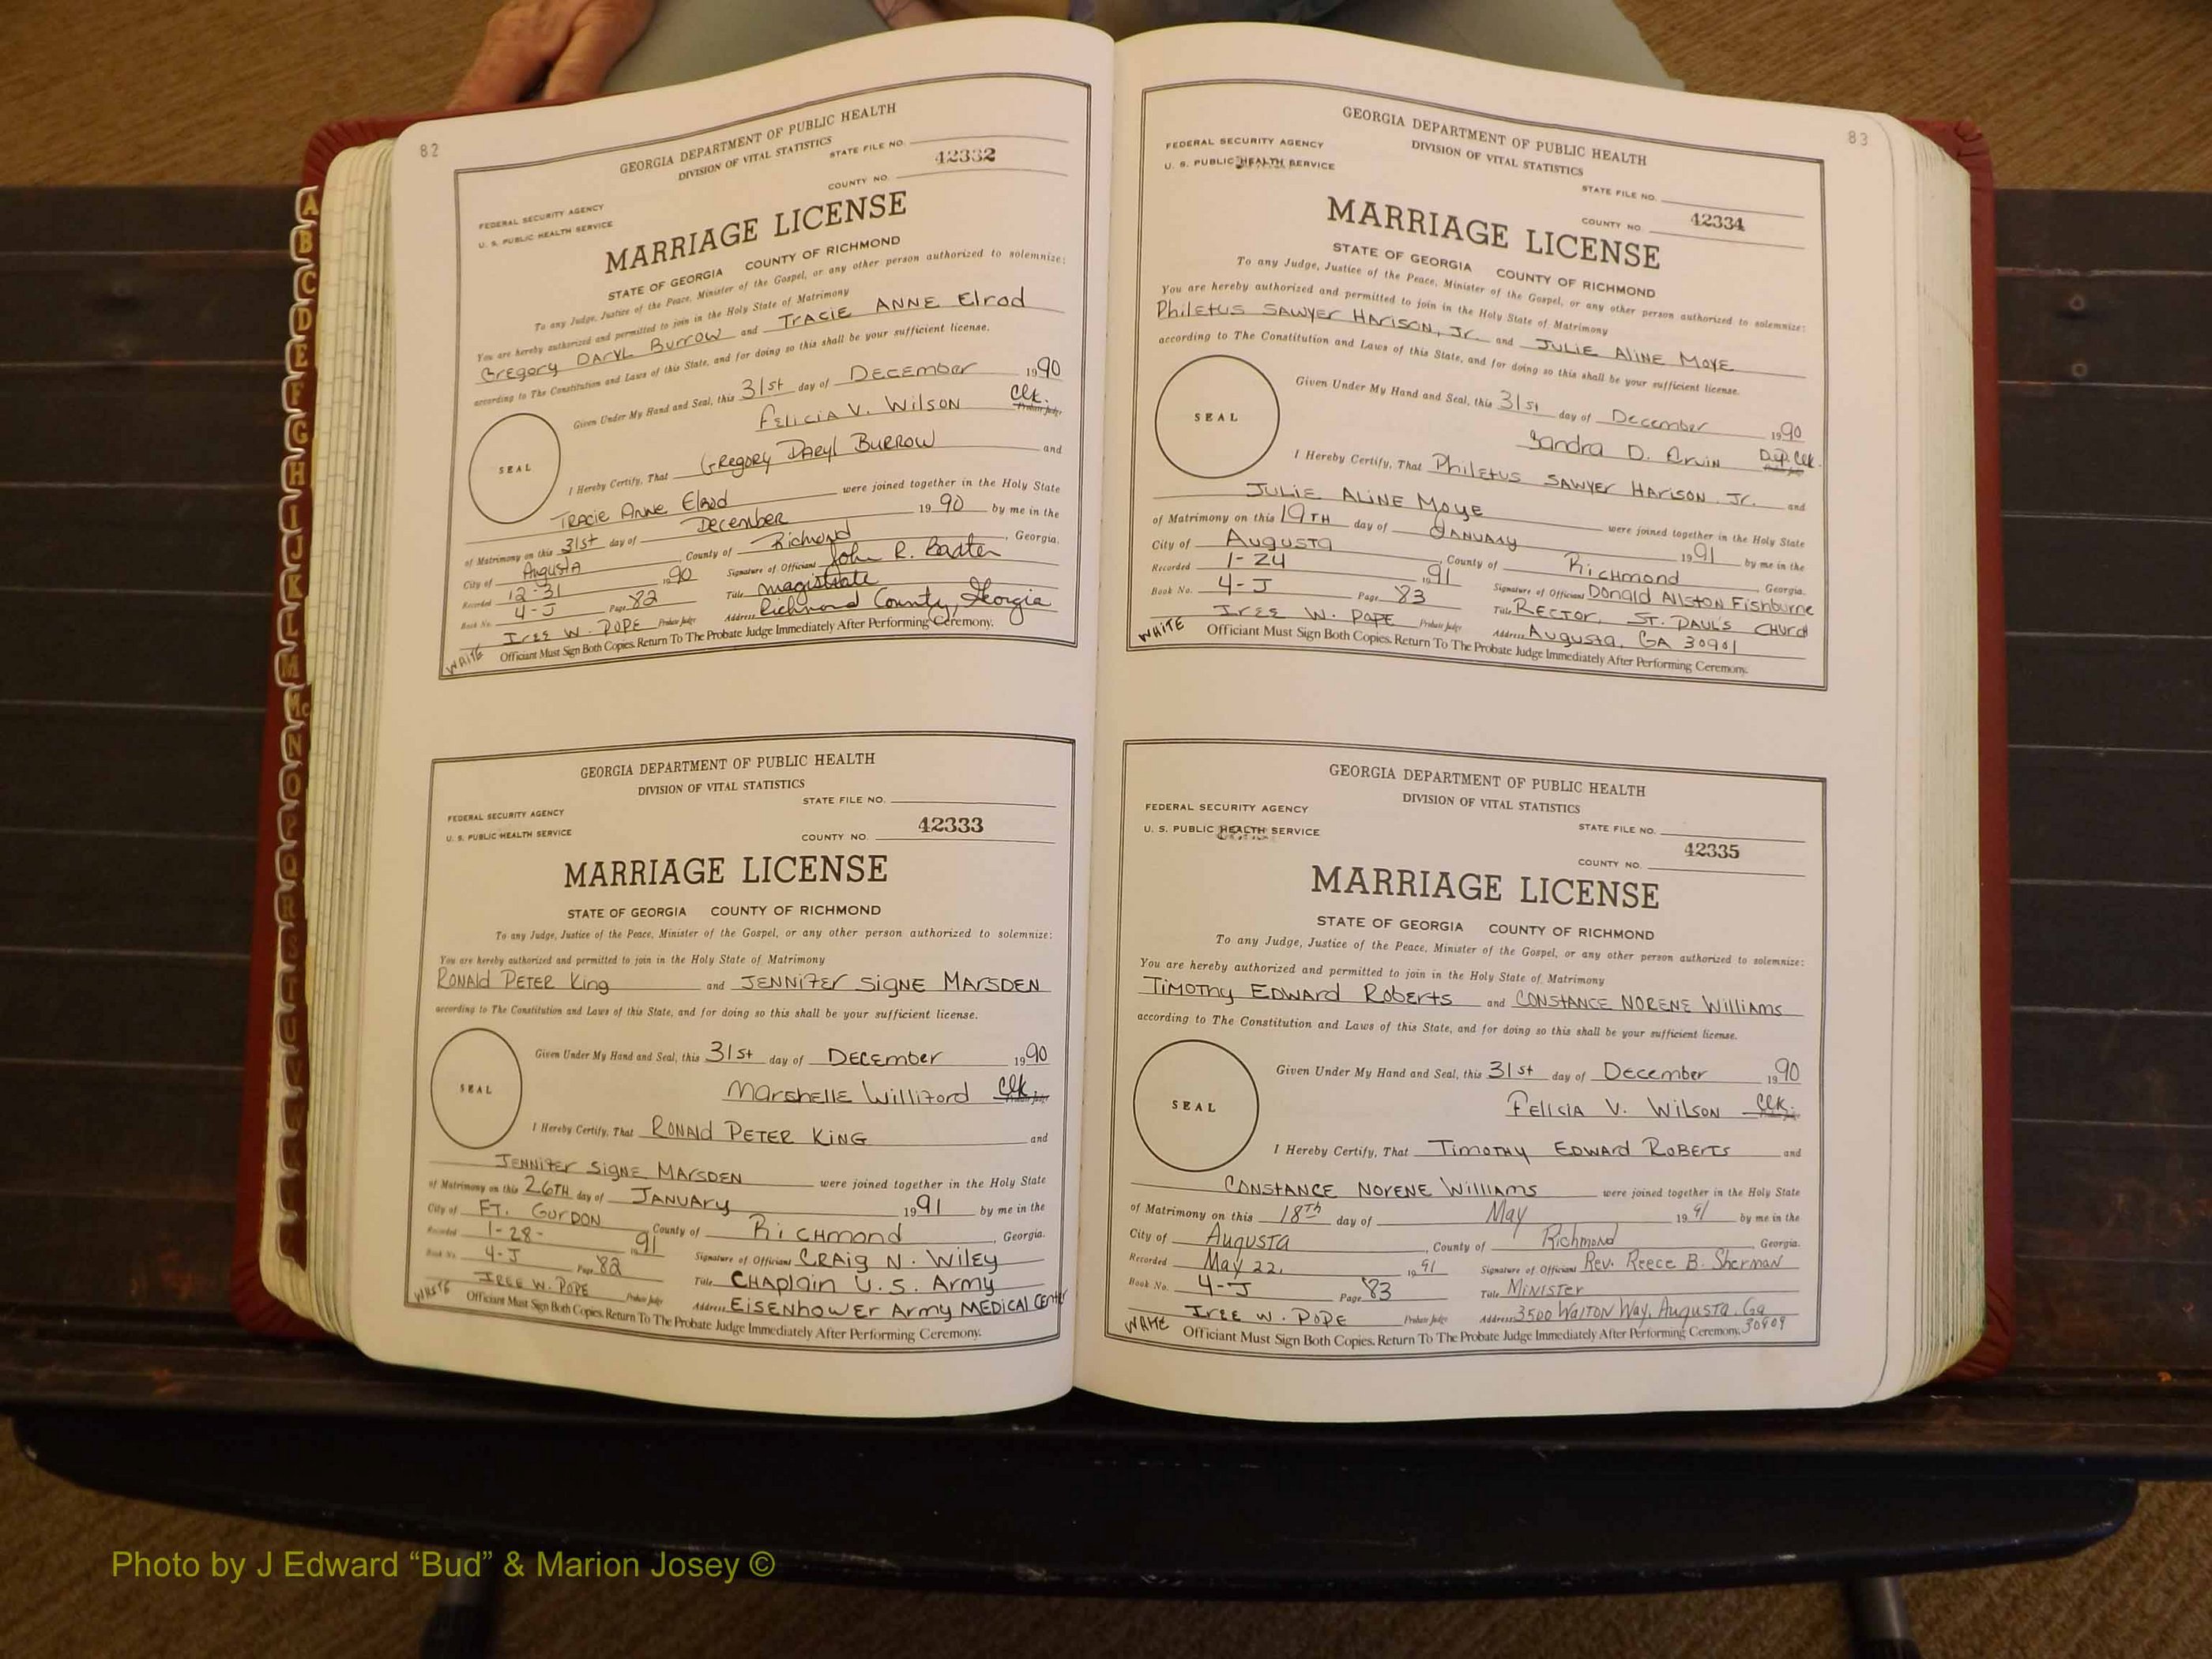 82
GEORGIA DEPARTMENT OF PUBLIC HEALTH
DIVISION OF VITAL STATISTICS
STATE FILE NO.
42332
COUNTY NO.
FEDERAL SECURITY AGENCY
U. S. PUBLIC HEALTH SERVICE
MARRIAGE LICENSE
STATE OF GEORGIA COUNTY OF RICHMOND
To any Judge, Justice of the Peace, Minister of the Gospel, or any other person authorized to solemnize:
You are hereby authorized and permitted to join in the Holy State of Matrimony
Gregory Daryl Burrow and Tracie Anne Elrod
according to The Constitution and Laws of this State, and for doing so this shall be your sufficient license.
Given Under My Hand and Seal, this 31st day of December 1990
Felicia V. Wilson Clk. Probate Judge
SEAL
I Hereby Certify, That Gregory Daryl Burrow and
Tracie Anne Elrod were joined together in the Holy State
of Matrimony on this 31st day of December 1990 by me in the
City of Augusta, County of Richmond, Georgia.
Recorded 12-31 1990 Signature of Officiant John R. Baxter
Book No. 4-J Page 82 Title magistrate
Iree W. Pope Probate Judge Address Richmond County, Georgia
WHITE Officiant Must Sign Both Copies. Return To The Probate Judge Immediately After Performing Ceremony.
GEORGIA DEPARTMENT OF PUBLIC HEALTH
DIVISION OF VITAL STATISTICS
STATE FILE NO.
FEDERAL SECURITY AGENCY
42333
U. S. PUBLIC HEALTH SERVICE
COUNTY NO.
MARRIAGE LICENSE
STATE OF GEORGIA COUNTY OF RICHMOND
To any Judge, Justice of the Peace, Minister of the Gospel, or any other person authorized to solemnize:
You are hereby authorized and permitted to join in the Holy State of Matrimony
Ronald Peter King and Jennifer Signe Marsden
according to The Constitution and Laws of this State, and for doing so this shall be your sufficient license.
Given Under My Hand and Seal, this 31st day of December 1990
Marshelle Williford Clk. Probate Judge
SEAL
I Hereby Certify, That Ronald Peter King and
Jennifer Signe Marsden were joined together in the Holy State
of Matrimony on this 26th day of January 1991 by me in the
City of Ft. Gordon, County of Richmond, Georgia.
Recorded 1-28- 1991 Signature of Officiant Craig N. Wiley
Book No. 4-J Page 82 Title Chaplain U.S. Army
Iree W. Pope Probate Judge Address Eisenhower Army Medical Center
WHITE Officiant Must Sign Both Copies. Return To The Probate Judge Immediately After Performing Ceremony.
83
GEORGIA DEPARTMENT OF PUBLIC HEALTH
DIVISION OF VITAL STATISTICS
FEDERAL SECURITY AGENCY
U. S. PUBLIC HEALTH SERVICE
STATE FILE NO.
42334
COUNTY NO.
MARRIAGE LICENSE
STATE OF GEORGIA COUNTY OF RICHMOND
To any Judge, Justice of the Peace, Minister of the Gospel, or any other person authorized to solemnize:
You are hereby authorized and permitted to join in the Holy State of Matrimony
Philetus Sawyer Harison, Jr. and Julie Aline Moye
according to The Constitution and Laws of this State, and for doing so this shall be your sufficient license.
Given Under My Hand and Seal, this 31st day of December 1990
Sandra D. Ervin Dep. Clk.
SEAL
I Hereby Certify, That Philetus Sawyer Harison Jr. and
Julie Aline Moye were joined together in the Holy State
of Matrimony on this 19th day of January 1991 by me in the
City of Augusta, County of Richmond, Georgia.
Recorded 1-24 1991 Signature of Officiant Donald Allston Fishburne
Book No. 4-J Page 83 Title Rector, St. Paul's Church
Iree W. Pope Probate Judge Address Augusta, GA 30901
WHITE Officiant Must Sign Both Copies. Return To The Probate Judge Immediately After Performing Ceremony.
GEORGIA DEPARTMENT OF PUBLIC HEALTH
DIVISION OF VITAL STATISTICS
FEDERAL SECURITY AGENCY
U. S. PUBLIC HEALTH SERVICE
STATE FILE NO.
42335
COUNTY NO.
MARRIAGE LICENSE
STATE OF GEORGIA COUNTY OF RICHMOND
To any Judge, Justice of the Peace, Minister of the Gospel, or any other person authorized to solemnize:
You are hereby authorized and permitted to join in the Holy State of Matrimony
Timothy Edward Roberts and Constance Norene Williams
according to The Constitution and Laws of this State, and for doing so this shall be your sufficient license.
Given Under My Hand and Seal, this 31st day of December 1990
Felicia V. Wilson Clk.
SEAL
I Hereby Certify, That Timothy Edward Roberts and
Constance Norene Williams were joined together in the Holy State
of Matrimony on this 18th day of May 1991 by me in the
City of Augusta, County of Richmond, Georgia.
Recorded May 22, 1991 Signature of Officiant Rev. Reece B. Sherman
Book No. 4-J Page 83 Title Minister
Iree W. Pope Probate Judge Address 3500 Walton Way, Augusta, Ga 30909
WHITE Officiant Must Sign Both Copies. Return To The Probate Judge Immediately After Performing Ceremony.
A
B
C
D
E
F
G
H
I
J
K
L
M
Mc
N
O
P
Q
R
S
T
U
V
W
Photo by J Edward “Bud” & Marion Josey ©